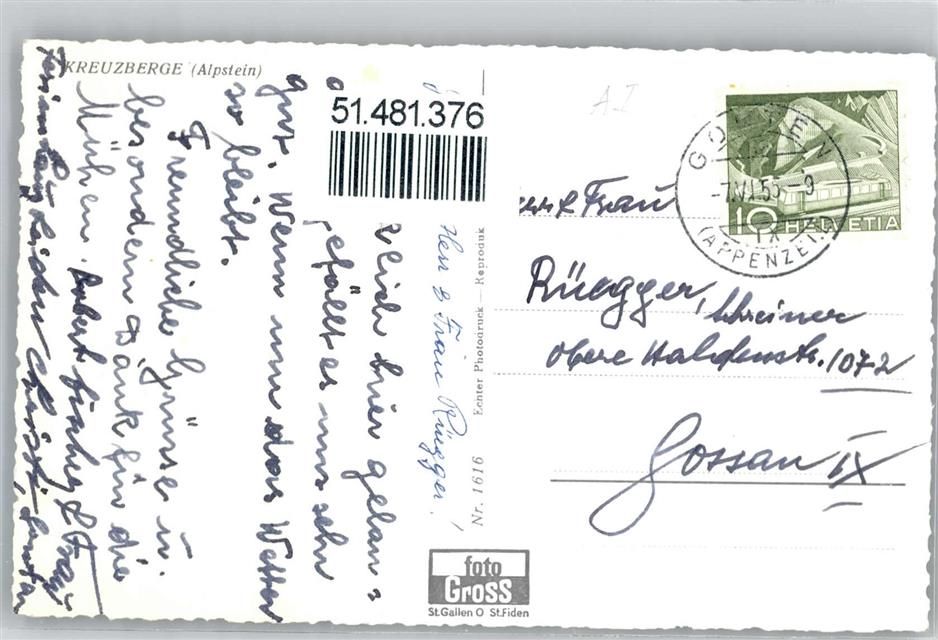 KREUZBERGE (Alpstein)
51.481.376
Herr & Frau Rüegger!
gleich hier gelan-
gefällt es uns sehr
gut. Wenn nun das Wetter
so bleibt.
Freundliche Grüsse u.
besondern Dank für die
Mühen. Robert Fischer & Frau
Nr. 1616 Echter Photodruck — Reproduk
HELVETIA
10
GONTEN
-7.VI.55-9
(APPENZELL)
& Frau
Rüegger, Schreiner
obere Haldenstr. 1072
Gossau
foto
GROSS
St.Gallen O St.Fiden